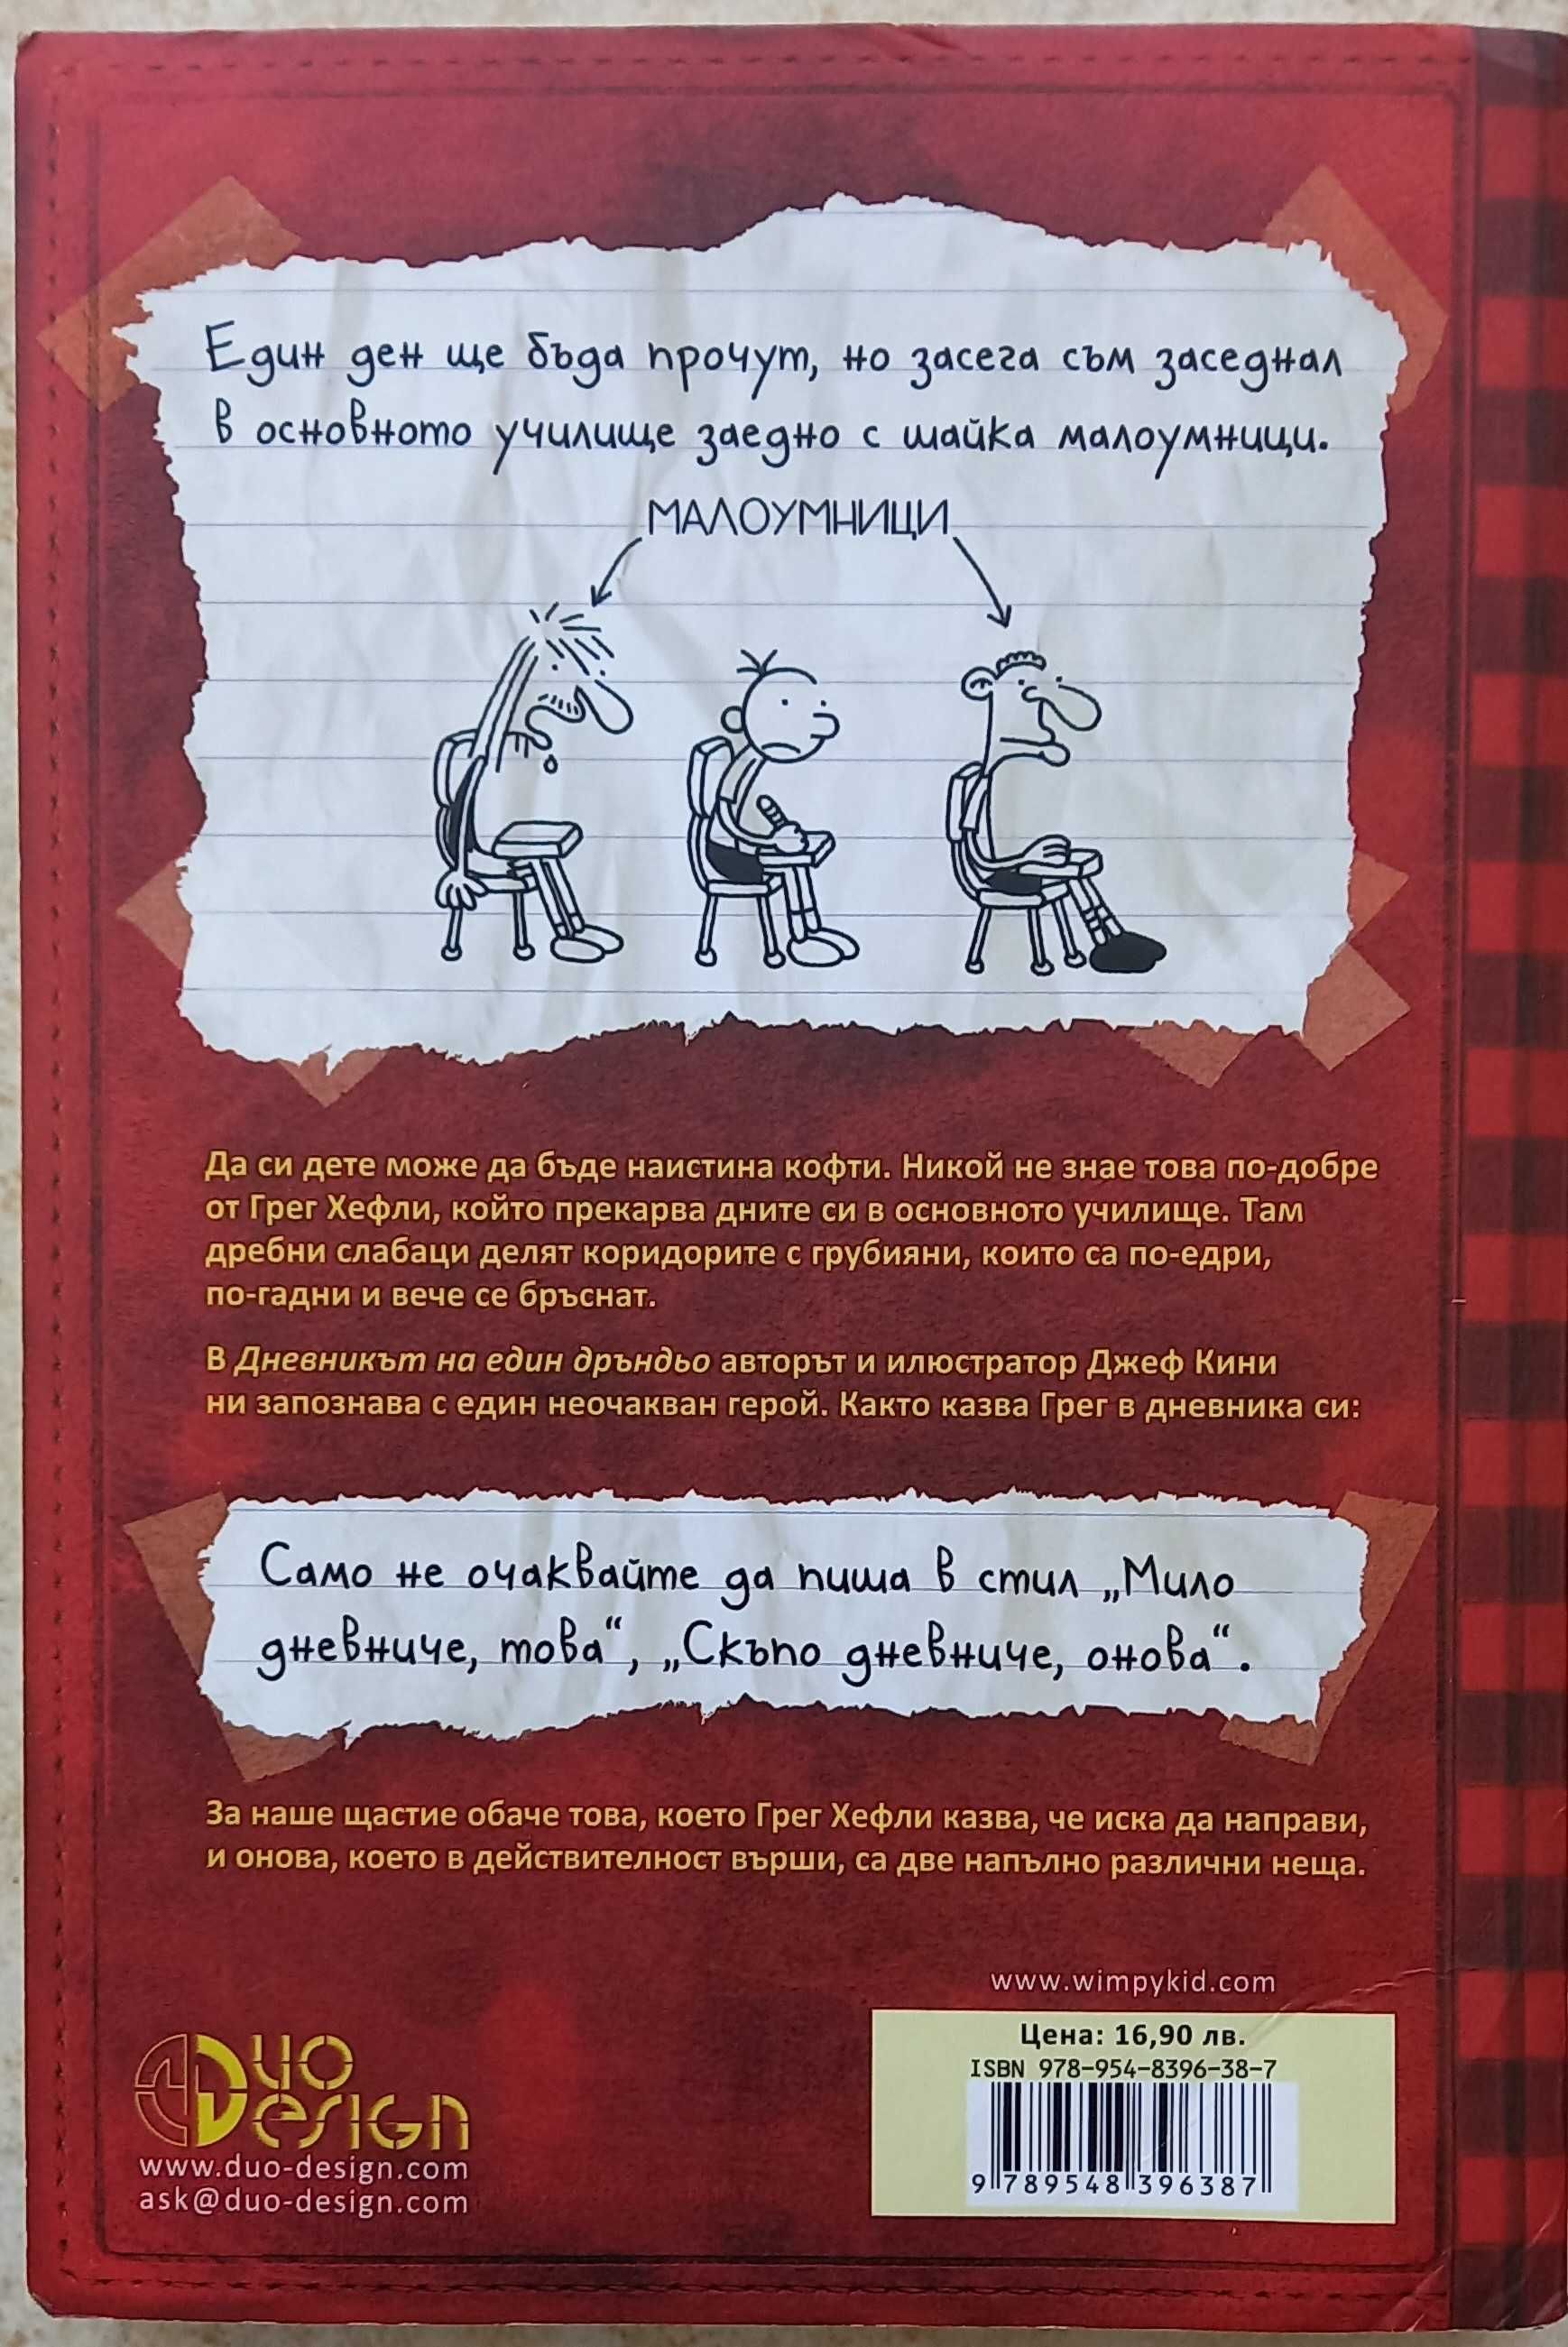 Един ден ще бъда прочут, но засега съм заседнал
в основното училище заедно с шайка малоумници.
МАЛОУМНИЦИ
Да си дете може да бъде наистина кофти. Никой не знае това по-добре
от Грег Хефли, който прекарва дните си в основното училище. Там
дребни слабаци делят коридорите с грубияни, които са по-едри,
по-гадни и вече се бръснат.
В Дневникът на един дръндьо авторът и илюстратор Джеф Кини
ни запознава с един неочакван герой. Както казва Грег в дневника си:
Само не очаквайте да пиша в стил „Мило
дневниче, това“, „Скъпо дневниче, онова“.
За наше щастие обаче това, което Грег Хефли казва, че иска да направи,
и онова, което в действителност върши, са две напълно различни неща.
www.wimpykid.com
Цена: 16,90 лв.
ISBN 978-954-8396-38-7
9 789548 396387
Duo
Design
www.duo-design.com
ask@duo-design.com